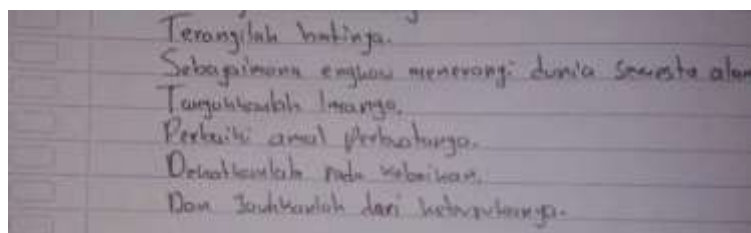 Terangilah hatinya.
Sebagaimana engkau menerangi dunia semesta alam
Tangguhkanlah Imannya.
Perbaiki amal perbuatannya.
Dekatkanlah pada kebaikan.
Dan Jauhkanlah dari keburukannya.